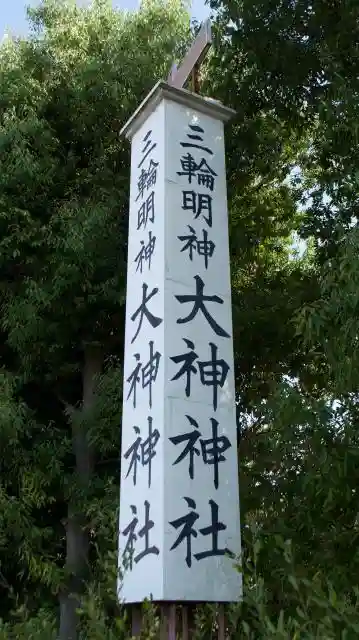 三輪明神
大神神社
三輪明神
大神神社